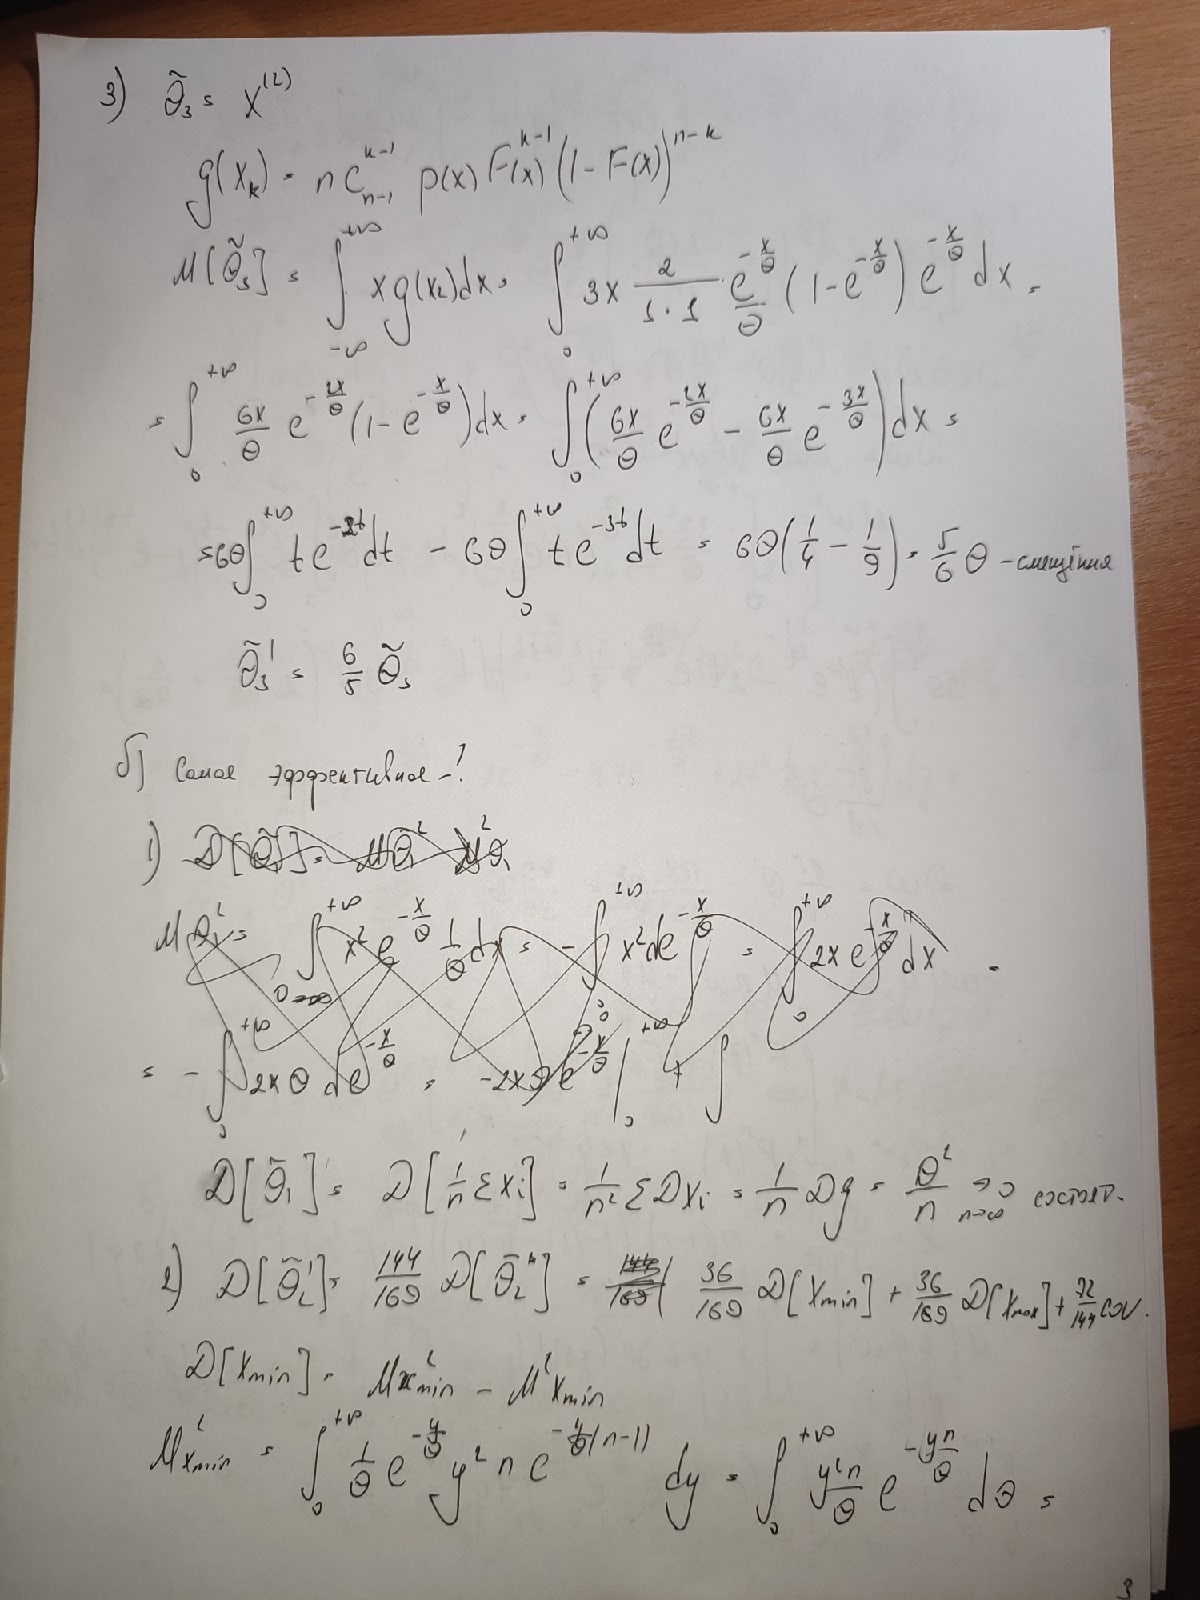 3) θ̃₃ = X⁽²⁾
g(x_k) = n C_{n-1}^{k-1} p(x) F^{k-1}(x) (1 - F(x))^{n-k}
M[θ̃₃] = ∫_{-∞}^{+∞} x g(x₂) dx = ∫_0^{+∞} 3x \frac{2}{1·1} · \frac{e^{-x/θ}}{θ} (1 - e^{-x/θ}) e^{-x/θ} dx =
= ∫_0^{+∞} \frac{6x}{θ} e^{-2x/θ} (1 - e^{-x/θ}) dx = ∫_0^{+∞} (\frac{6x}{θ} e^{-2x/θ} - \frac{6x}{θ} e^{-3x/θ}) dx =
= 6θ ∫_0^{+∞} t e^{-2t} dt - 6θ ∫_0^{+∞} t e^{-3t} dt = 6θ (\frac{1}{4} - \frac{1}{9}) = \frac{5}{6} θ - смещённая
θ̃₃' = \frac{6}{5} θ̃₃
б) Самая эффективная -?
1)
= - ∫_0^{+∞} 2xθ de^{-x/θ} = -2xθ e^{-x/θ} |_0^{+∞} + ∫
D[θ̃₁] = D[\frac{1}{n} Σxᵢ] = \frac{1}{n²} ΣDxᵢ = \frac{1}{n} Dξ = \frac{θ²}{n} →_{n→∞} 0 состоят.
2) D[θ̃₂'] = \frac{144}{169} D[θ̃₂] = \frac{36}{169} D[x_{min}] + \frac{36}{169} D[x_{max}] + \frac{72}{144} cov.
D[x_{min}] = Mx²_{min} - M²x_{min}
Mx²_{min} = ∫_0^{+∞} \frac{1}{θ} e^{-y/θ} y² n e^{-\frac{y}{θ}(n-1)} dy = ∫_0^{+∞} \frac{y²n}{θ} e^{-\frac{yn}{θ}} dθ =
3